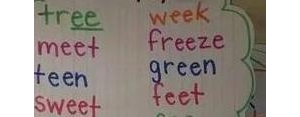 tree week
meet freeze
teen green
sweet feet